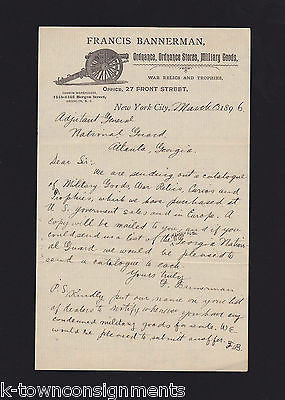 FRANCIS BANNERMAN,
Ordnance, Ordnance Stores, Military Goods,
WAR RELICS AND TROPHIES,
OFFICE, 27 FRONT STREET.
New York City, March 1896
Adjutant General
National Guard
Atlanta, Georgia.
Dear Sir:-
We are sending out a catalogue
of Military Goods, War Relics, Curios and
Trophies, which we have purchased at
U.S. government sales and in Europe. A
copy will be mailed to you, and if you
could send us a list of the Georgia Nation-
al Guard we would be pleased to
send a catalogue to each
Yours truly
F. Bannerman
P.S. Kindly put our name on your list
of dealers to notify whenever you have any
condemned military goods for sale. We
would be pleased to submit an offer. F.B.
k-townconsignments